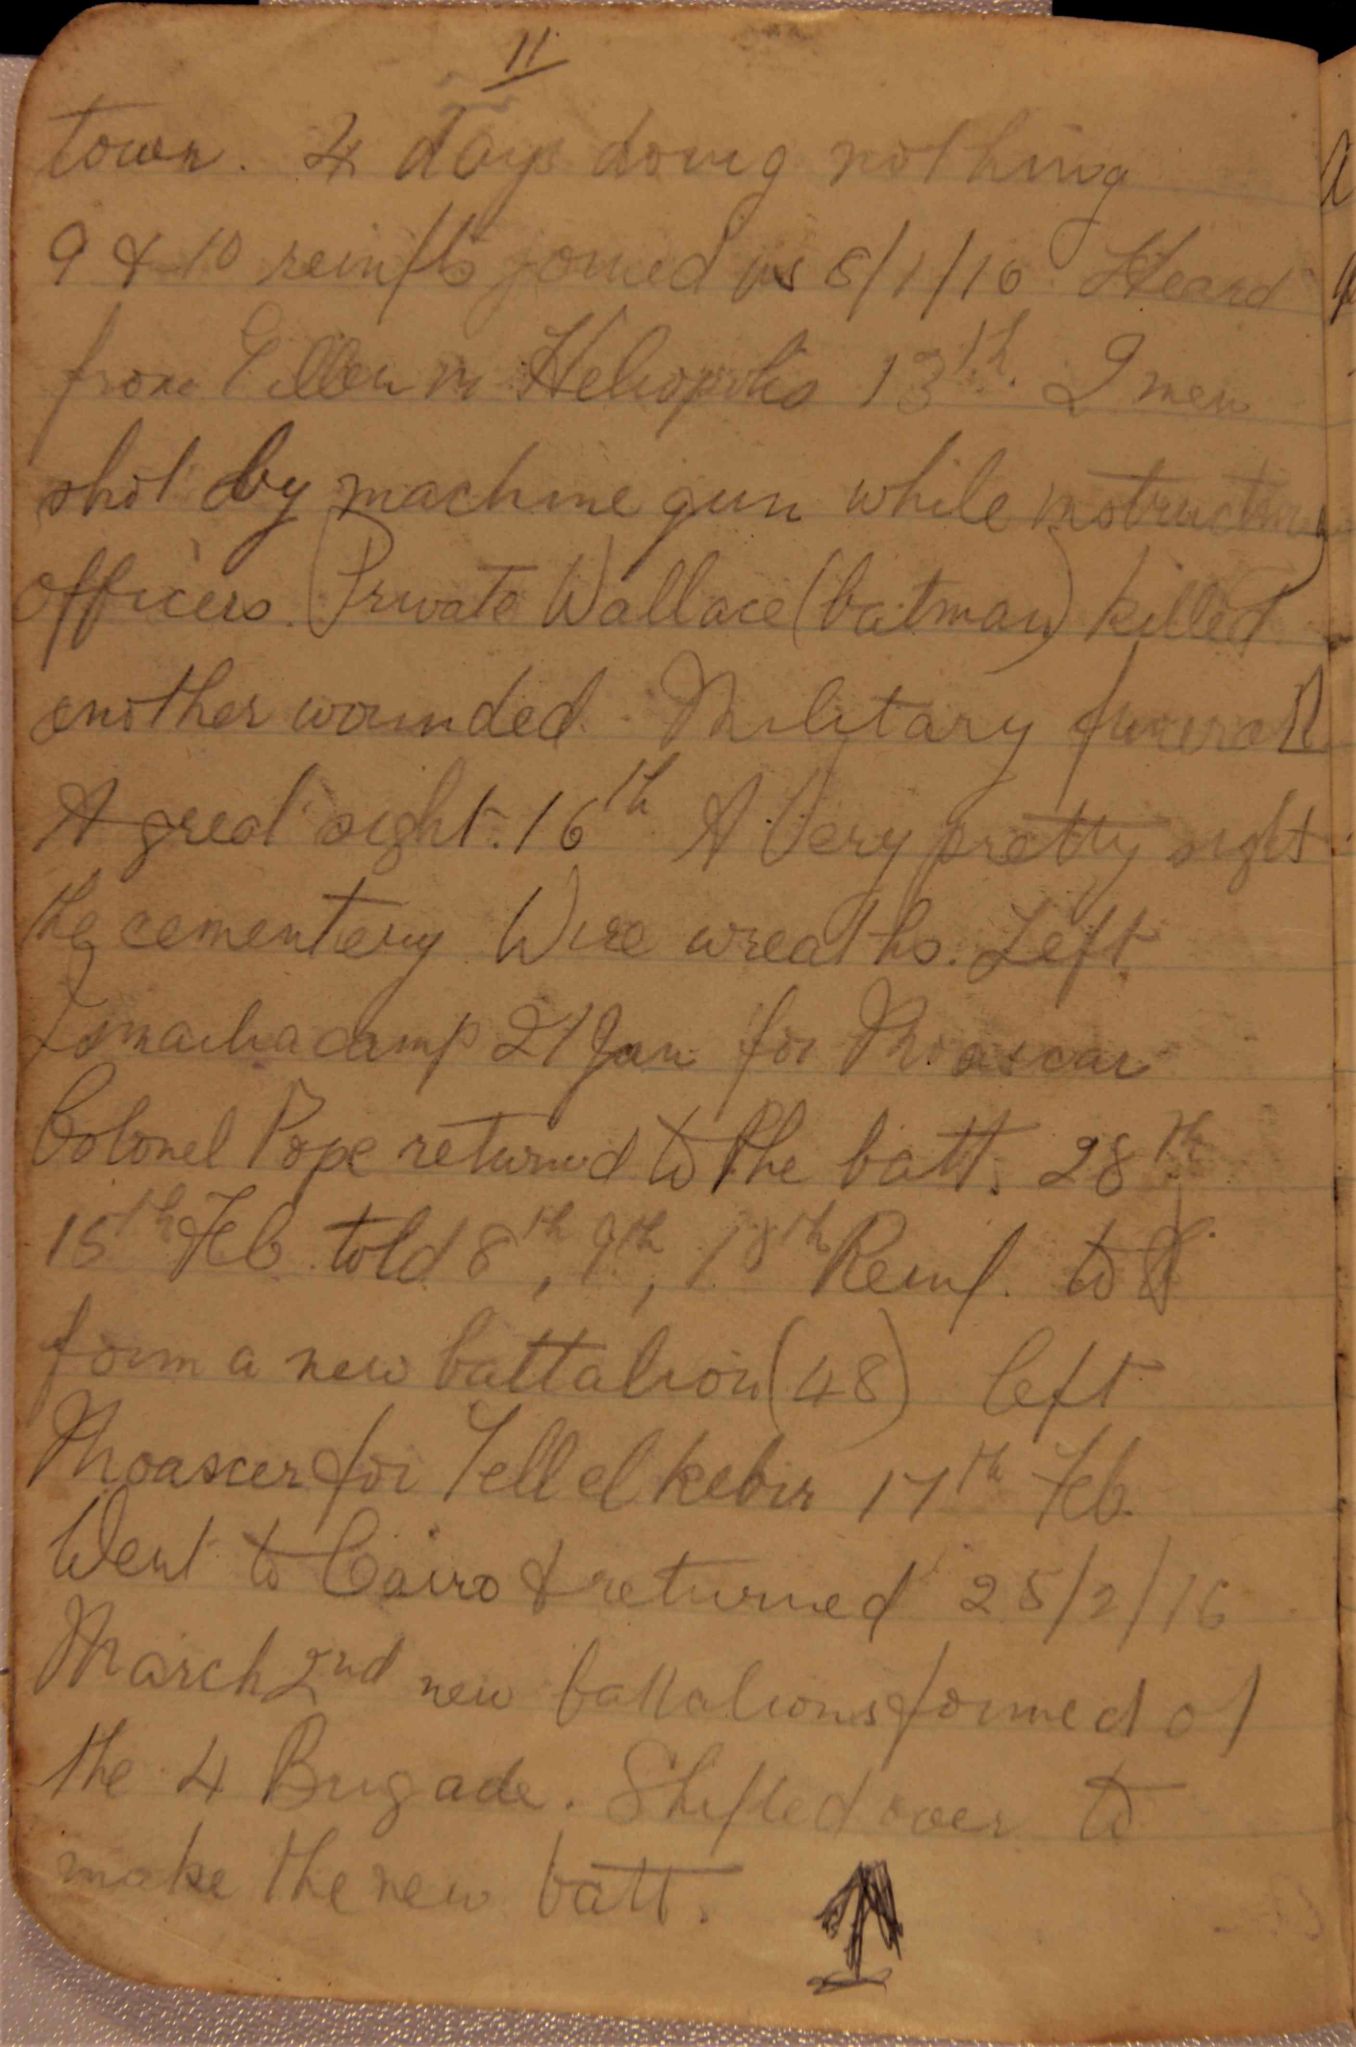 11
town. 4 days doing nothing
9 & 10 reinfts joined us 8/1/16 Heard
from Ellen in Heliopolis 13th. 2 men
shot by machine gun while instructing
officers. (Private Wallace (batman) killed)
another wounded. Military funeral
A great sight. 16th A Very pretty sight
the cementery Wire wreaths. Left
Ismailia camp 21 Jan for Moascar
Colonel Pope returned to the batt. 28th
15th Feb. told 8th, 9th, 10th Reinf. to
form a new battalion (48) left
Moascer for Tell el Kebir 17th Feb.
Went to Cairo & returned 25/2/16
March 2nd new battalions formed of
the 4 Brigade. Shifted over to
make the new batt.